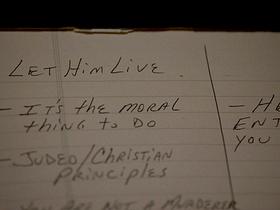 LET HIM LIVE.
– IT'S THE MORAL
THING TO DO
– JUDEO/CHRISTIAN
PRINCIPLES
YOU ARE NOT A MURDERER
– HE
ENT
YOU